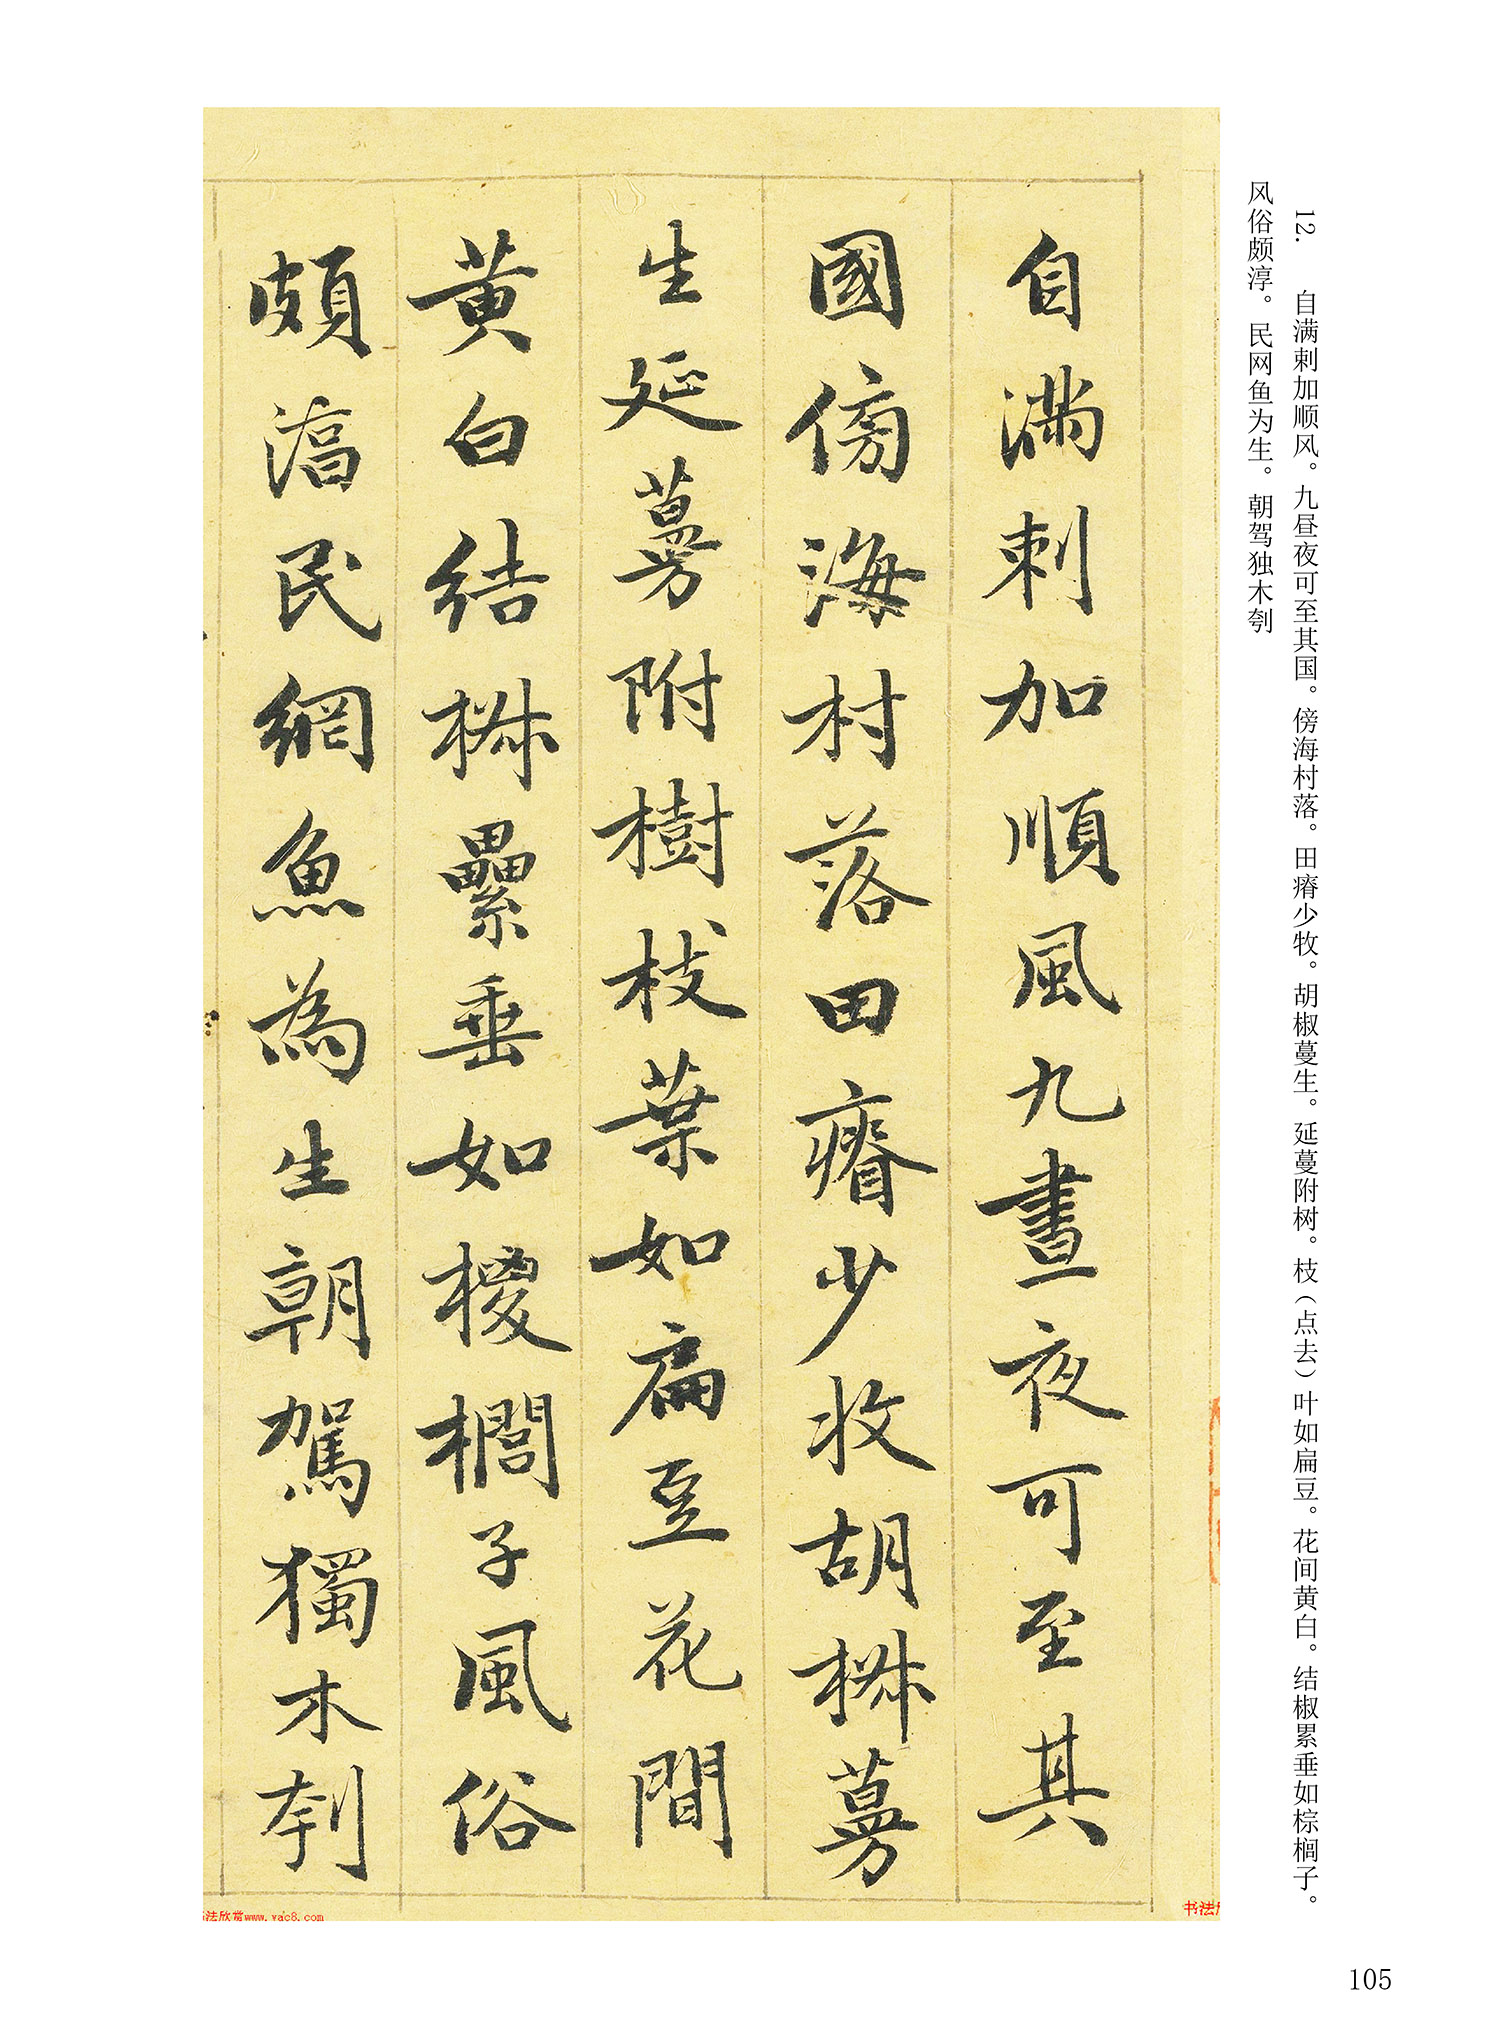 12. 自满剌加顺风。九昼夜可至其国。傍海村落。田瘠少牧。胡椒蔓生。延蔓附树。枝（点去）叶如扁豆。花间黄白。结椒累垂如棕榈子。
风俗颇淳。民网鱼为生。朝驾独木刳
自滿剌加順風九晝夜可至其
國傍海村落田瘠少收胡椒蔓
生延蔓附樹枝葉如扁豆花間
黄白結椒纍垂如椶櫚子風俗
頗淳民網魚為生朝駕獨木刳
书法欣赏www.yac8.com
书法
105